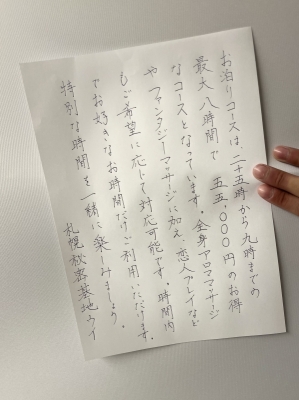 お泊りコースは、二十五時から九時までの
最大八時間で五五、〇〇〇円のお得
なコースとなっています。全身アロママッサージ
やファンタジーマッサージに加え、恋人プレイなど
もご希望に応じて対応可能です。時間内
でお好きなお時間だけご利用いただけます。
特別な時間を一緒に楽しみましょう。
札幌秘密基地ウイ